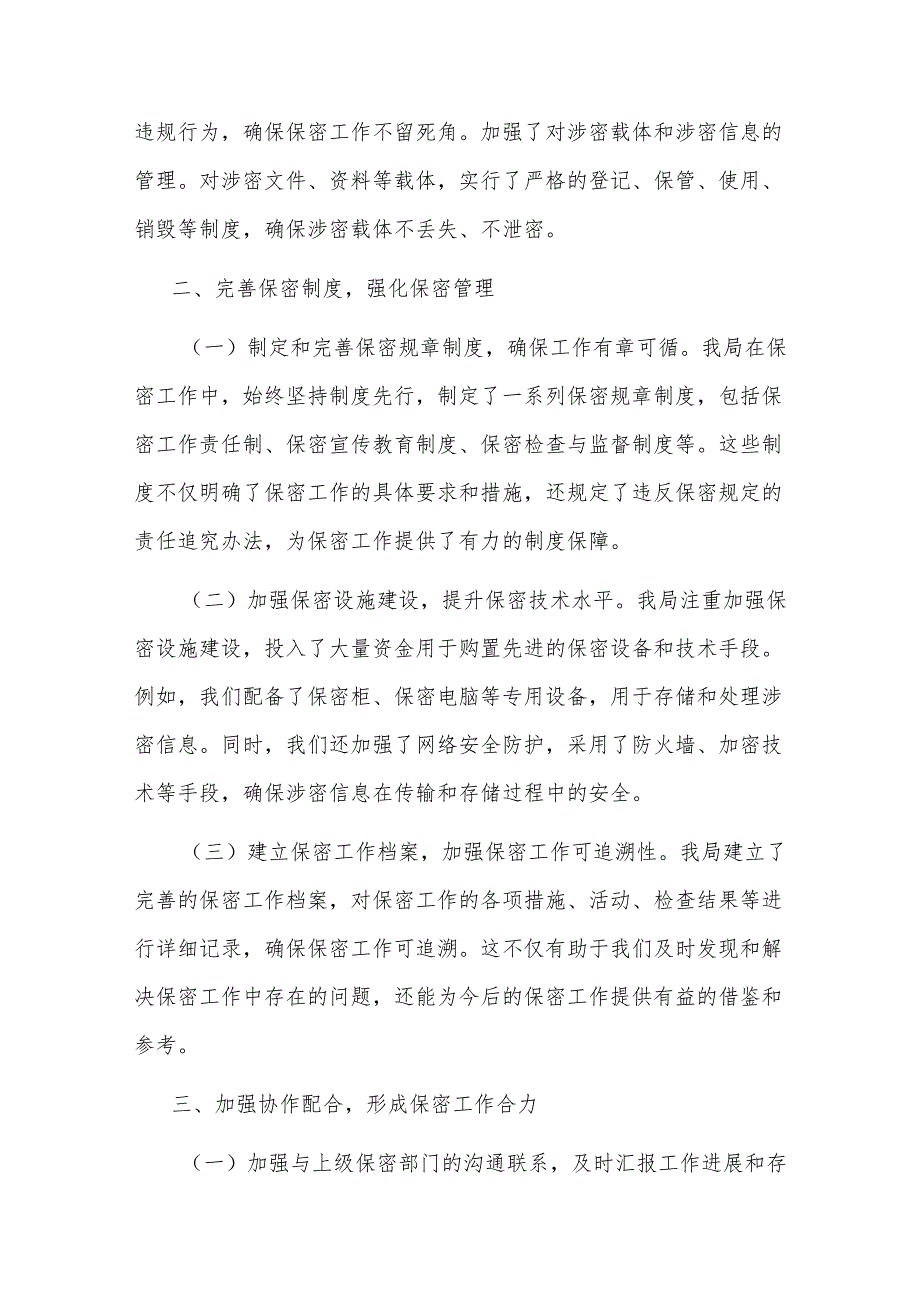 违规行为，确保保密工作不留死角。加强了对涉密载体和涉密信息的
管理。对涉密文件、资料等载体，实行了严格的登记、保管、使用、
销毁等制度，确保涉密载体不丢失、不泄密。
二、完善保密制度，强化保密管理
（一）制定和完善保密规章制度，确保工作有章可循。我局在保
密工作中，始终坚持制度先行，制定了一系列保密规章制度，包括保
密工作责任制、保密宣传教育制度、保密检查与监督制度等。这些制
度不仅明确了保密工作的具体要求和措施，还规定了违反保密规定的
责任追究办法，为保密工作提供了有力的制度保障。
（二）加强保密设施建设，提升保密技术水平。我局注重加强保
密设施建设，投入了大量资金用于购置先进的保密设备和技术手段。
例如，我们配备了保密柜、保密电脑等专用设备，用于存储和处理涉
密信息。同时，我们还加强了网络安全防护，采用了防火墙、加密技
术等手段，确保涉密信息在传输和存储过程中的安全。
（三）建立保密工作档案，加强保密工作可追溯性。我局建立了
完善的保密工作档案，对保密工作的各项措施、活动、检查结果等进
行详细记录，确保保密工作可追溯。这不仅有助于我们及时发现和解
决保密工作中存在的问题，还能为今后的保密工作提供有益的借鉴和
参考。
三、加强协作配合，形成保密工作合力
（一）加强与上级保密部门的沟通联系，及时汇报工作进展和存